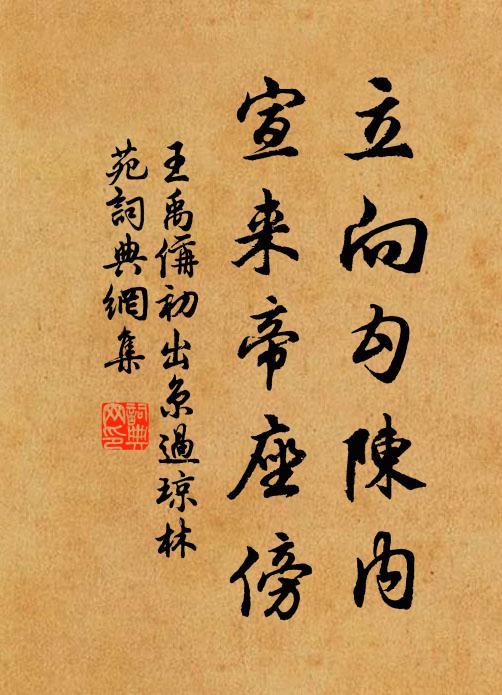 立向勾陳内
宣来帝座傍
王禹偁初出京過瓊林
苑詞典網集
詞典
网印